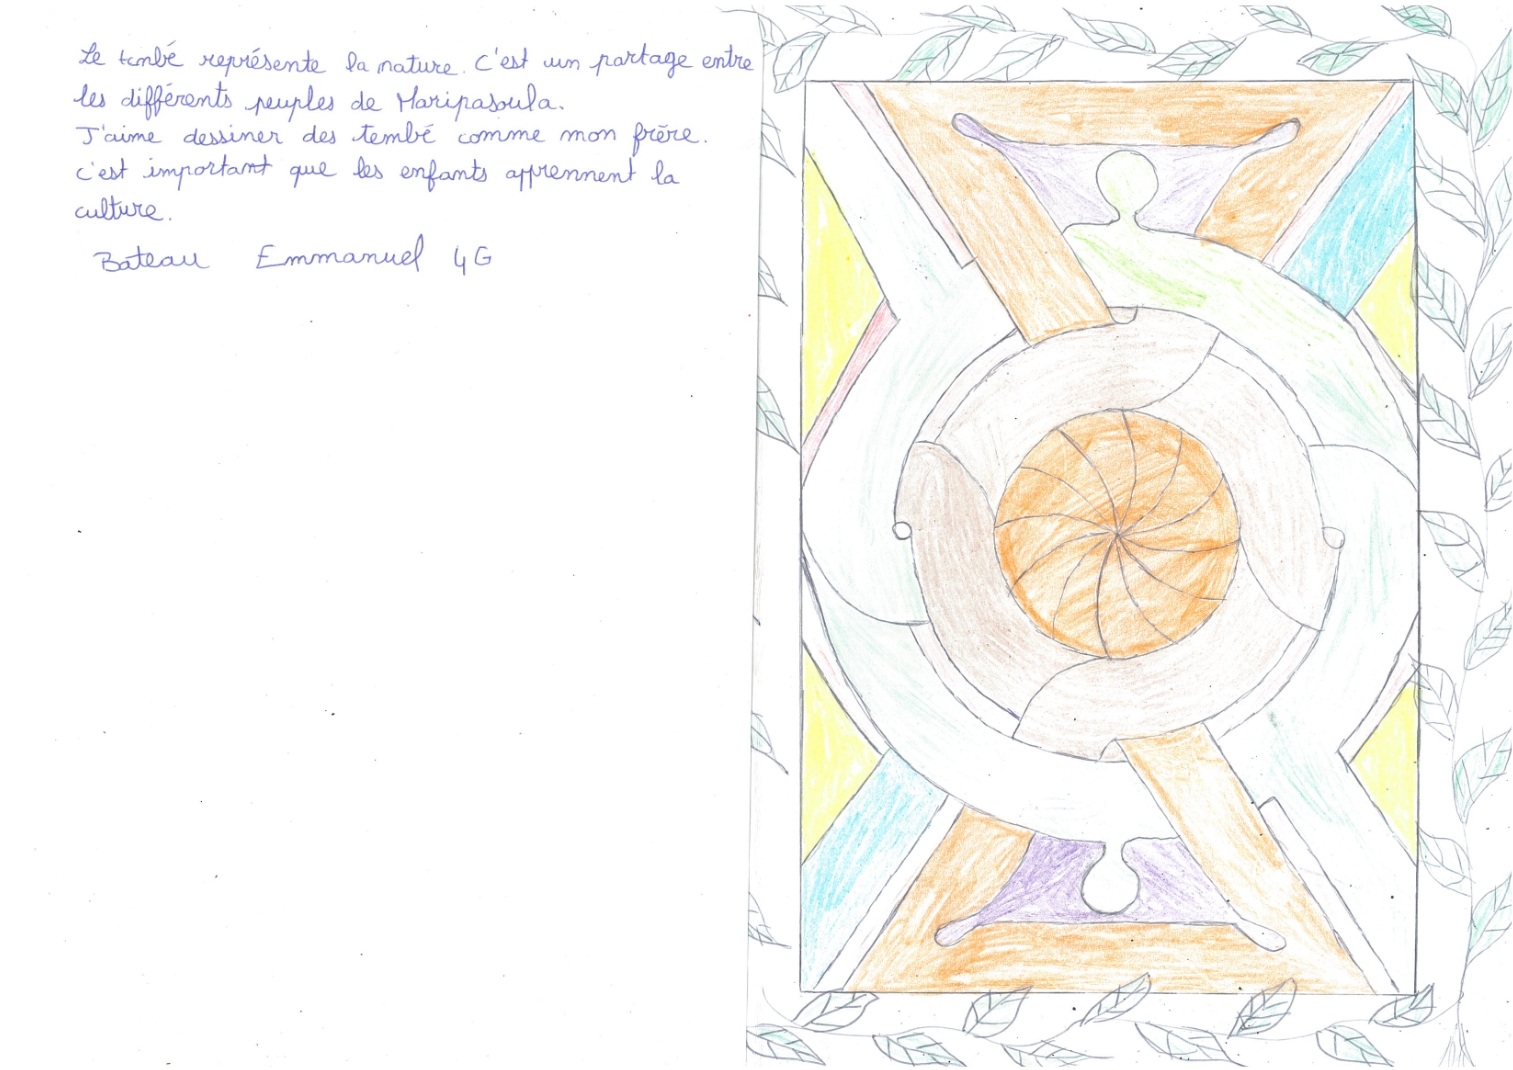 Le tembé représente la nature. C'est un partage entre
les différents peuples de Maripasoula.
J'aime dessiner des tembé comme mon frère.
c'est important que les enfants apprennent la
culture.
Bateau Emmanuel 4G